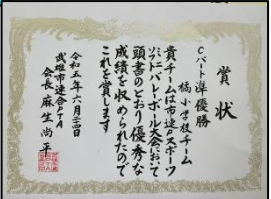 賞状
Cパート準優勝
橘小学校チーム
貴チームは市連Pスポーツ
ソフトバレーボール大会において
頭書のとおり優秀な
成績を収められたので
これを賞します
令和五年六月二十四日
武雄市連合PTA
会長 麻生尚平